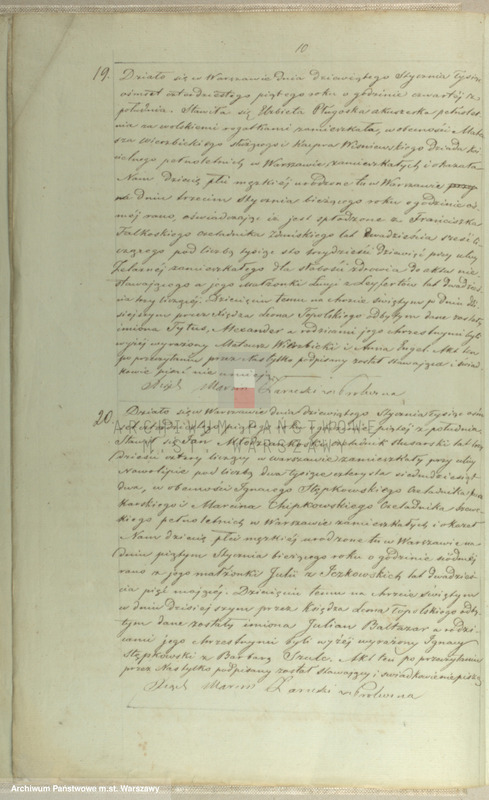 10
19. Działo się w Warszawie dnia dziewiątego Stycznia tysiąc
ośmset czterdziestego piątego roku o godzinie czwartéj z
południa. Stawiła się Elżbieta akuszerka pełnolet
nia za wolskiemi rogatkami zamieszkała, w obecności Mate
usza Wierzbickiego stużącego i Kacpra Wiśniewskiego dziada ko
ścielnego pełnoletnich w Warszawie zamieszkałych i okazała
Nam dziecię płci męzkiéj urodzone tu w Warszawie
na dniu trzecim Stycznia bieżącego roku o godzinie ós
méj rano, oświadczając iż jest spłodzone z Franciszka
Falkoskiego czeladnika lat dwadzieścia sześć li
czącego pod liczbą tysiąc sto trzydzieści dziewięć przy ulicy
Żelaznéj zamieszkałego dla słabości zdrowia do aktu nie
stawającego a jego małżonki Lucyi z lat dwadzie
ścia trzy liczącéj. Dziecięciu temu na chrzcie świętym w dniu dzi
siejszym przez Xiędza Leona Topolskiego odbytym dane zostały
imiona Tytus, Alexander a rodzicami jego chrzestnymi byli
wyżéj wyrażony Mateusz Wierzbicki i Anna Engel. Akt ten
po przeczytaniu przez Nas tylko podpisany został stawająca i świad
kowie pisać nie umieją.
Xiądz Marcin
20. Działo się w Warszawie dnia dziewiątego Stycznia tysiąc ośm
set czterdziestego piątego roku o godzinie piątéj z południa.
Stawił się Jan Młodziankoski czeladnik slusarski lat trzy
dzieści cztery liczący w Warszawie zamieszkały przy ulicy
Nowolipie pod liczbą dwa tysiące czterysta siedmdziesiąt
dwa, w obecności Ignacego Stępkowskiego czeladnika
karskiego i Marcina Chipkowskiego czeladnika szew
ckiego pełnoletnich w Warszawie zamieszkałych i okazał
Nam dziecię płci męzkiéj urodzone tu w Warszawie na
dniu piątym Stycznia bieżącego roku o godzinie siódméj
rano z jego małżonki Julii z Jezkowskich lat dwadzieś
cia pięć mającéj. Dziecięciu temu na chrzcie świętym
w dniu dzisiejszym przez Księdza Leona Topolskiego odby
tym dane zostały imiona Julian Baltazar a rodzi
cami jego chrzestnymi byli wyżéj wyrażony Ignacy
Stępkowski z Barbarą Szulc. Akt ten po przeczytaniu
przez Nas tylko podpisany został stawający i świadkowie nie piszą
Xiądz Marcin
ARCHIWUM PAŃSTWOWE
M. ST. WARSZAWY
Archiwum Państwowe m.st. Warszawy